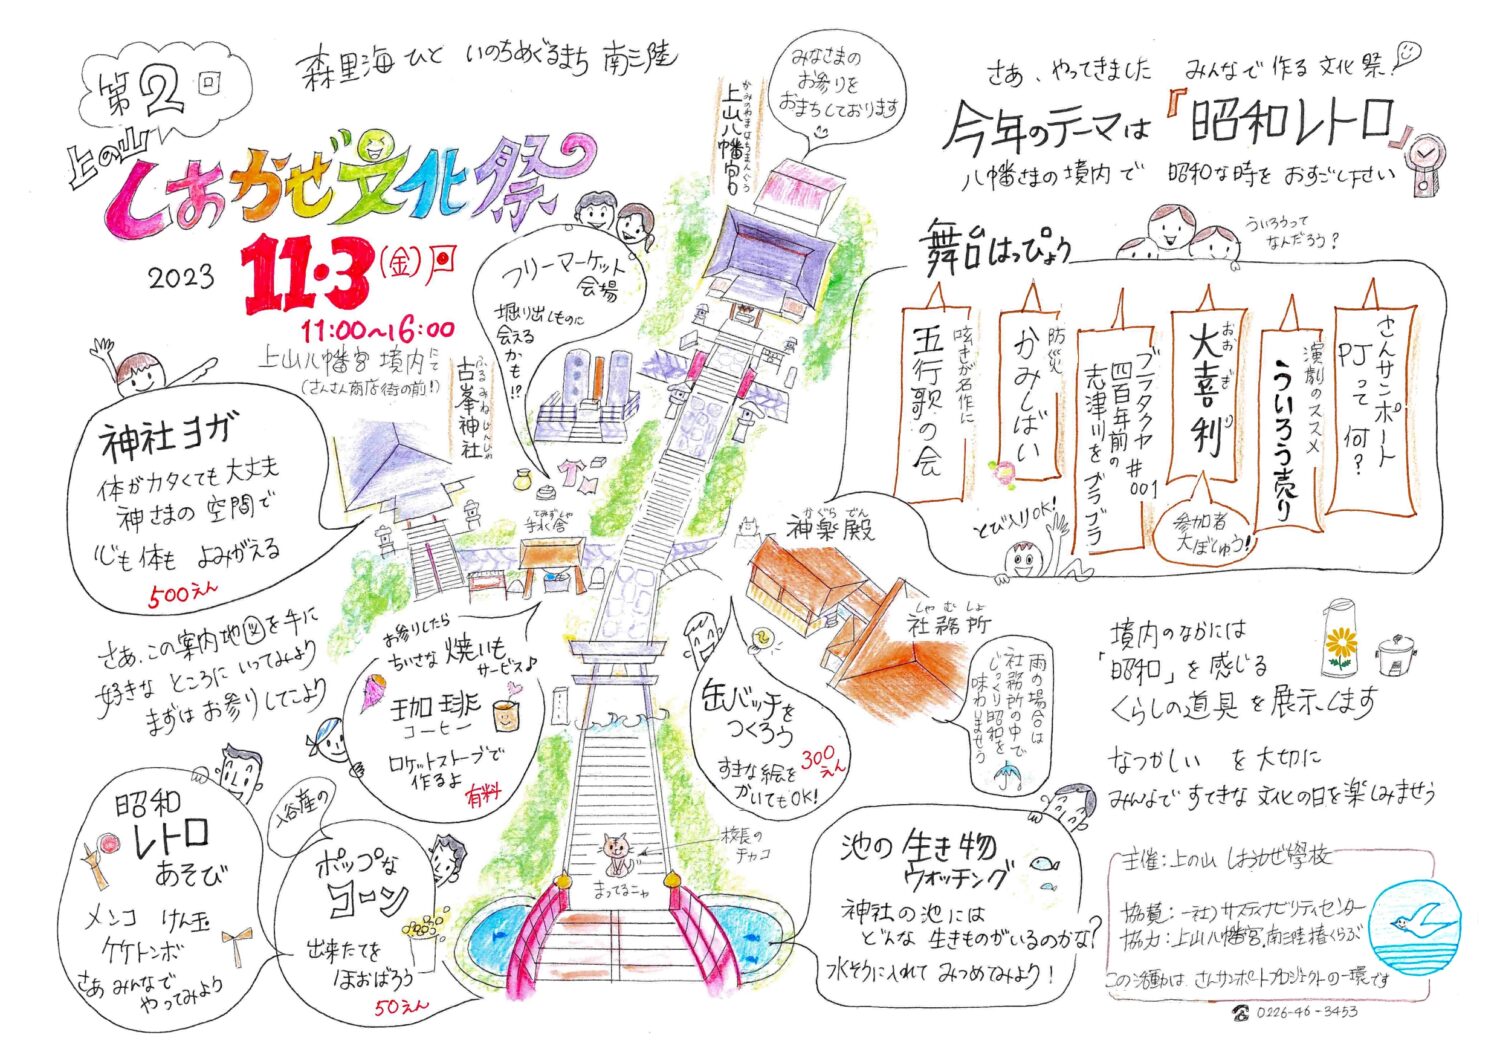 森里海ひと いのちめぐるまち 南三陸
第2回
上の山
しおかぜ文化祭
2023
11・3(金)祝
11:00〜16:00
上山八幡宮 境内にて
(さんさん商店街の前!)
かみのやまはちまんぐう
上山八幡宮
みなさまの
お参りを
おまちしております
さあ、やってきました みんなで作る文化祭!
今年のテーマは『昭和レトロ』
八幡さまの境内で 昭和な時をおすごし下さい
フリーマーケット
会場
掘り出しものに
会える
かも!?
ふるみねじんじゃ
古峯神社
神社ヨガ
体がカタくても大丈夫
神さまの空間で
心も体も よみがえる
500えん
舞台はっぴょう
ういろうって
なんだろう?
さんサンポート
PJって何?
演劇のススメ
ういろう売り
おおぎり
大喜利
参加者
大ぼしゅう!
ブラタクヤ#001
四百年前の
志津川をブラブラ
防災
かみしばい
呟きが名作に
五行歌の会
とび入りOK!
てみずしゃ
手水舎
かぐらでん
神楽殿
しゃむしょ
社務所
雨の場合は
社務所の中で
じっくり昭和を
味わいませう
さあ、この案内地図を手に
好きな ところに いってみよう
まずは お参りしてこよう
お参りしたら
ちいさな焼いも
サービス♪
珈琲
コーヒー
ロケットストーブで
作るよ
有料
缶バッチを
つくろう
すきな絵を
かいてもOK!
300えん
境内のなかには
「昭和」を感じる
くらしの道具を展示します
なつかしい を大切に
みんなですてきな文化の日を楽しみませう
昭和
レトロ
あそび
メンコ けん玉
ケケトンボ
さあ みんなで
やってみよう
入谷産の
ポップな
コーン
出来たてを
ほおばろう
50えん
校長の
チャコ
まってるニャ
池の生き物
ウォッチング
神社の池には
どんな生きものがいるのかな?
水そうに入れて みつめてみよう!
主催:上の山 しおかぜ學校
協賛:一社)サスティナビリティセンター
協力:上山八幡宮、南三陸椿くらぶ
この活動は、さんサンポートプロジェクトの一環です
☎ 0226-46-3453